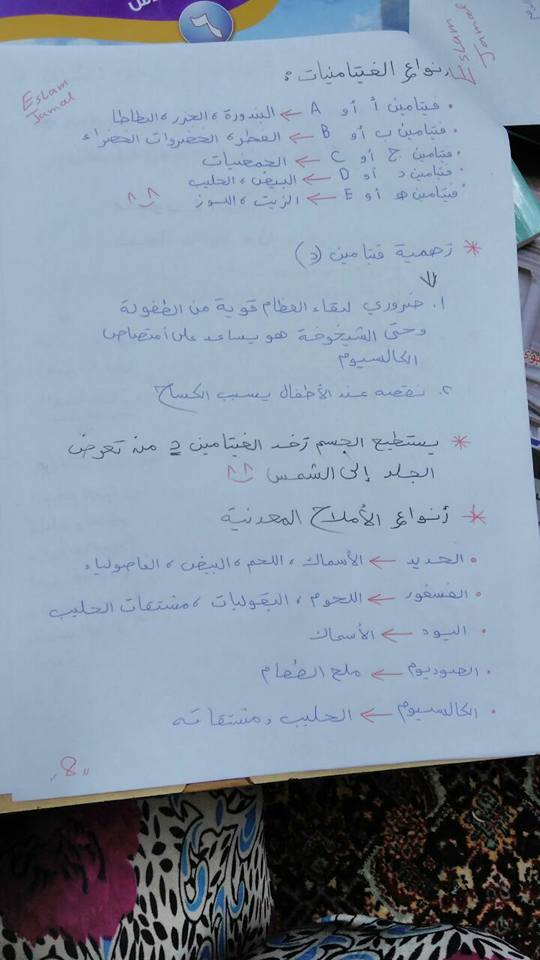 ٦
Eslam
Jamal
Eslam
Jamal
أنواع الفيتامينات:
• فيتامين أ أو A ← البندورة، الجزر، البطاطا
• فيتامين ب أو B ← الفطر، الخضروات الخضراء
• فيتامين ج أو C ← الحمضيات
• فيتامين د أو D ← البيض، الحليب
• فيتامين ه أو E ← الزيت، اللوز ^‿^
* أهمية فيتامين (د)
⇓
١. ضروري لبقاء العظام قوية من الطفولة
وحتى الشيخوخة هو يساعد على امتصاص
الكالسيوم
٢. نقصه عند الأطفال يسبب الكساح
* يستطيع الجسم أخذ الفيتامين د من تعرض
الجلد إلى الشمس ^‿^
* أنواع الأملاح المعدنية
• الحديد ← الأسماك، اللحم، البيض، الفاصولياء
• الفسفور ← اللحوم، البقوليات، مشتقات الحليب
• اليود ← الأسماك
• الصوديوم ← ملح الطعام
• الكالسيوم ← الحليب ومشتقاته
"8"